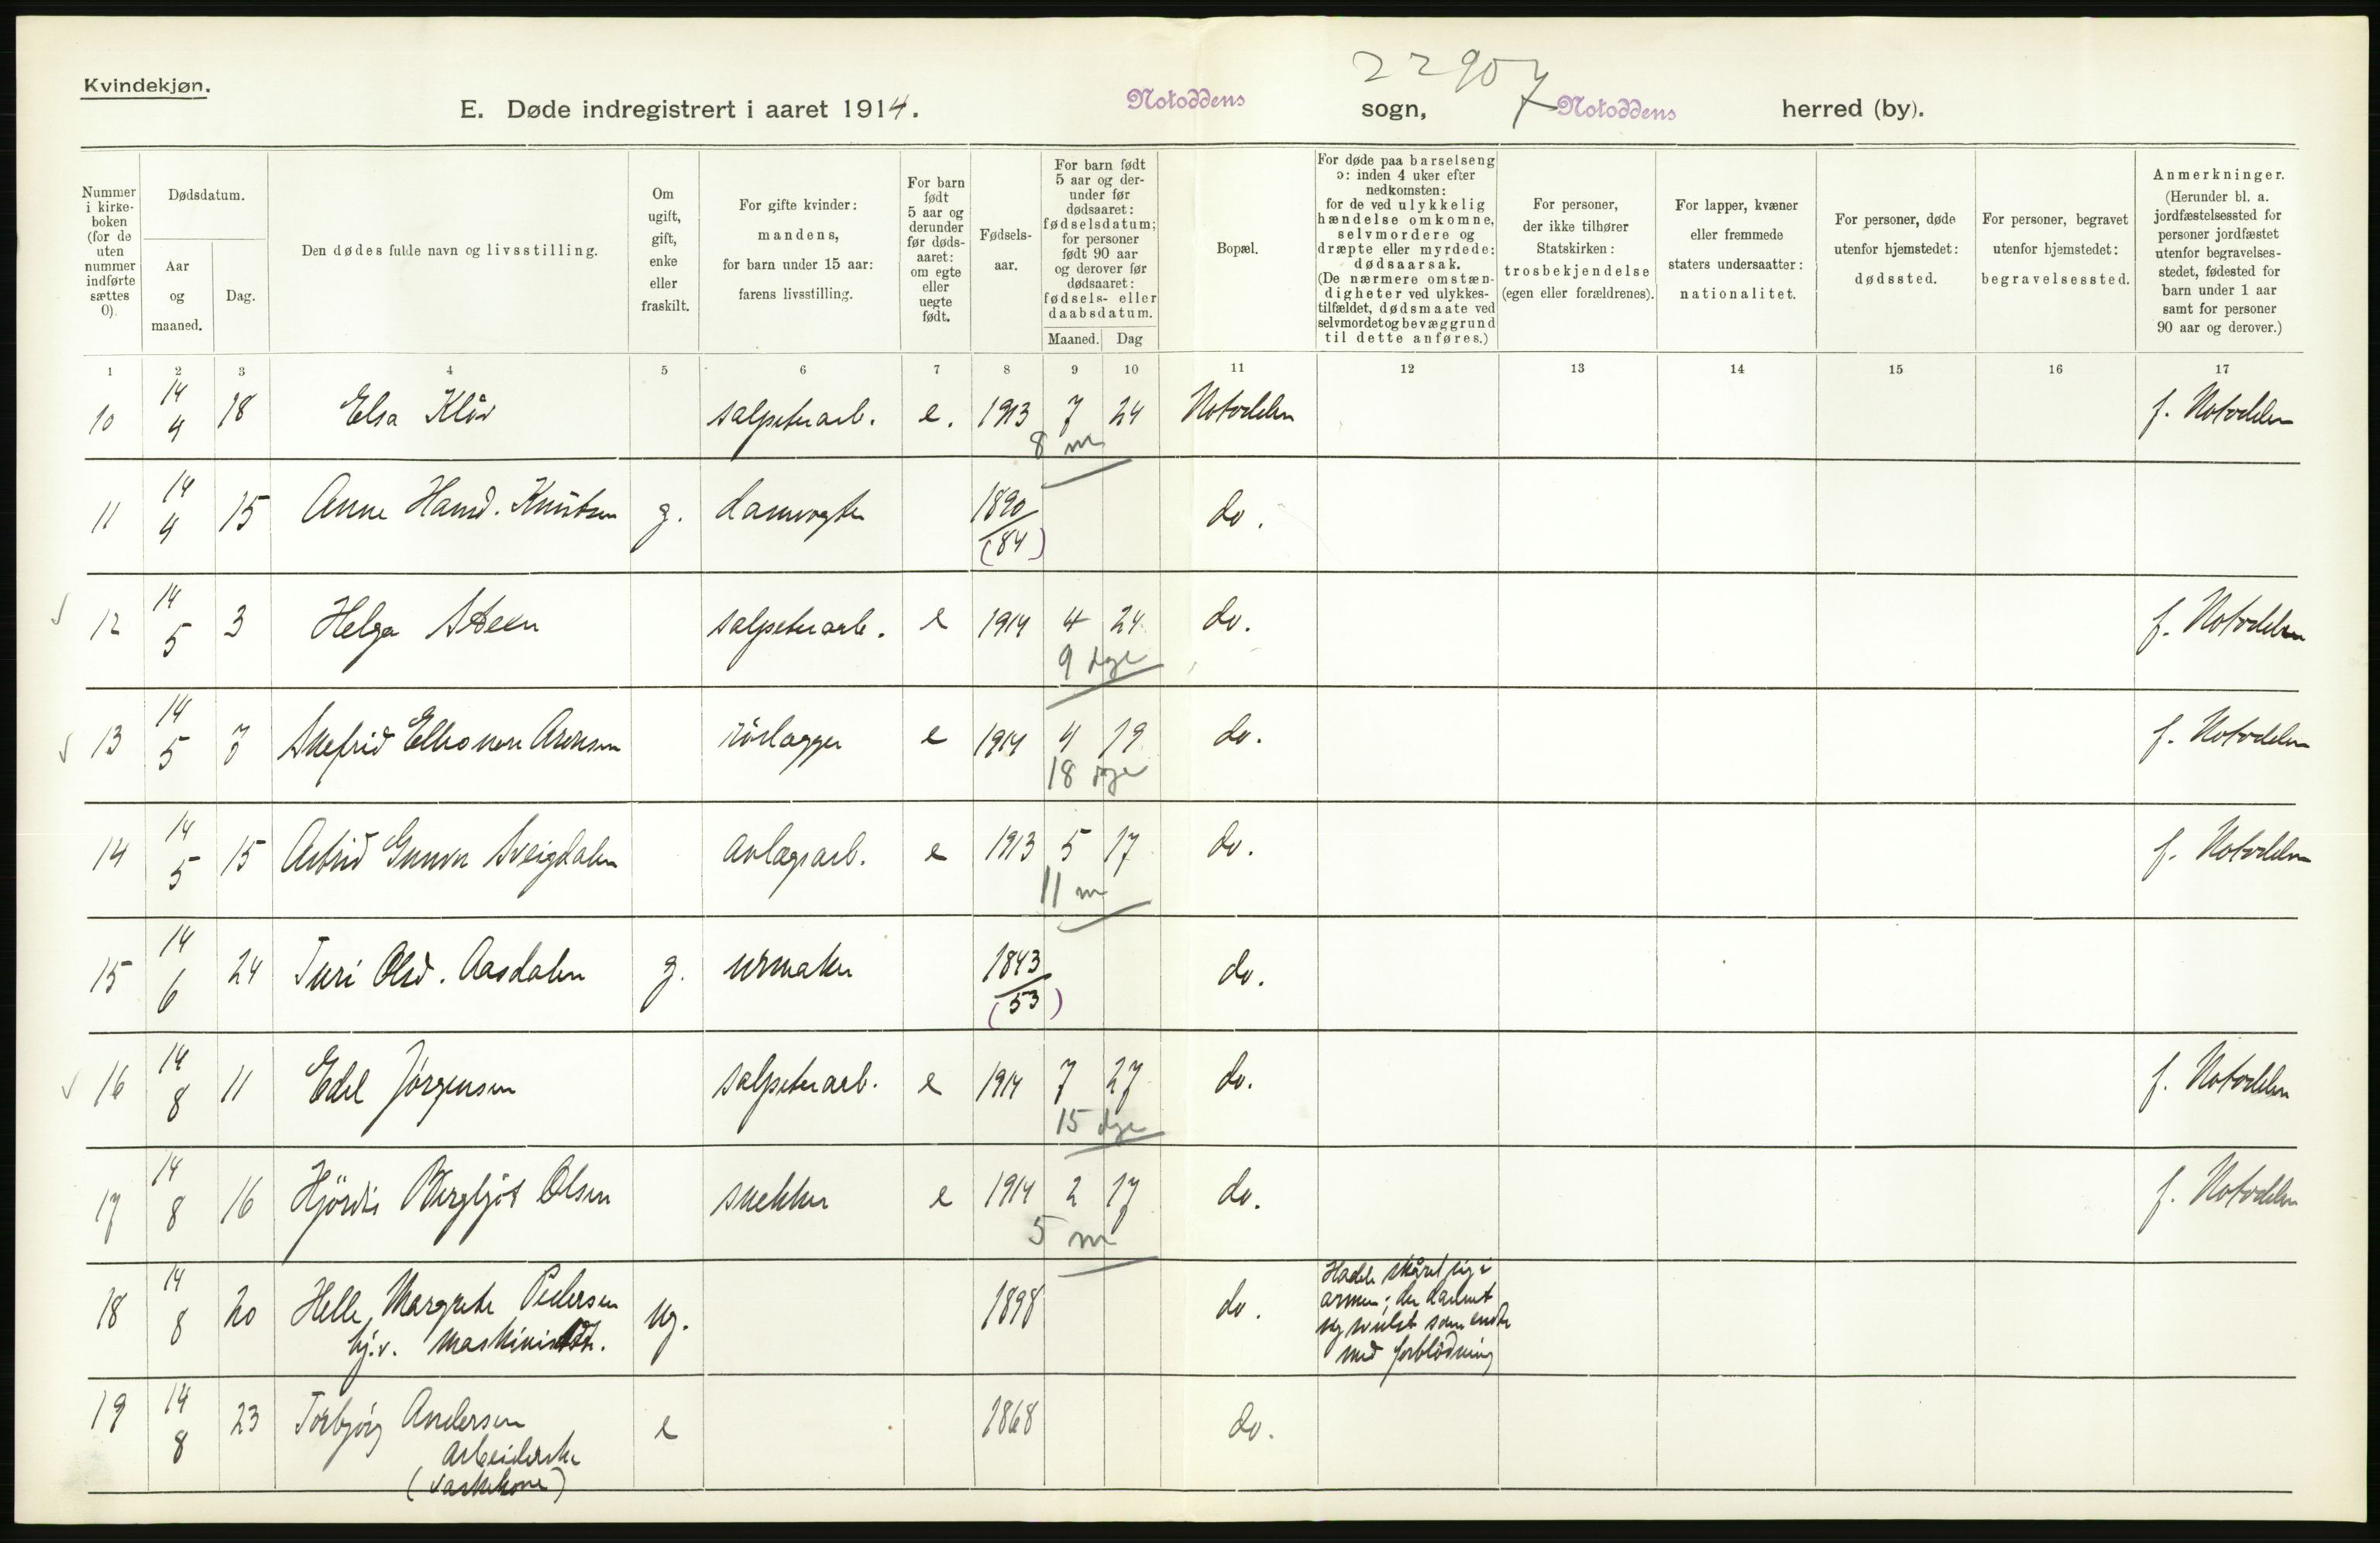 22907
Kvindekjøn.
E. Døde indregistrert i aaret 1914. Notoddens sogn, Notoddens herred (by).
Nummer i kirke-boken (for de uten nummer indførte sættes 0).
Dødsdatum.
Aar og maaned.
Dag.
Den dødes fulde navn og livsstilling.
Om ugift, gift, enke eller fraskilt.
For gifte kvinder: mandens, for barn under 15 aar: farens livsstilling.
For barn født 5 aar og derunder før døds-aaret: om egte eller uegte født.
Fødsels-aar.
For barn født 5 aar og der-under før dødsaaret: fødselsdatum; for personer født 90 aar og derover før dødsaaret: fødsels- eller daabsdatum.
Maaned. Dag
Bopæl.
For døde paa barselseng ɔ: inden 4 uker efter nedkomsten: for de ved ulykkelig hændelse omkomne, selvmordere og dræpte eller myrdede: dødsaarsak. (De nærmere omstæn-digheter ved ulykkes-tilfældet, dødsmaate ved selvmordet og bevæggrund til dette anføres.)
For personer, der ikke tilhører Statskirken: trosbekjendelse (egen eller forældrenes).
For lapper, kvæner eller fremmede staters undersaatter: nationalitet.
For personer, døde utenfor hjemstedet: dødssted.
For personer, begravet utenfor hjemstedet: begravelsessted.
Anmerkninger. (Herunder bl. a. jordfæstelsessted for personer jordfæstet utenfor begravelses-stedet, fødested for barn under 1 aar samt for personer 90 aar og derover.)
1 2 3 4 5 6 7 8 9 10 11 12 13 14 15 16 17
10 14 4 18 Elsa Kløv salpeterarb. e. 1913 7 24 Notodden f. Notodden
8 m
11 14 4 15 Anne Hansd. Knutsen g. damvogter 1890 (84) do.
12 14 5 3 Helga Steen salpeterarb. e 1914 4 24 do. f. Notodden
9 dge
13 14 5 7 Snefrid Elleonore Aronsen rörlægger e 1914 4 19 do. f. Notodden
18 dge
14 14 5 15 Astrid Gunvor Sveigdalen anlægsarb. e 1913 5 17 do. f. Notodden
11 m
15 14 6 24 Turi Olsd. Aasdalen g. urmaker 1843 (53) do.
16 14 8 11 Edel Jörgensen salpeterarb. e 1914 7 27 do. f. Notodden
15 dge
17 14 8 16 Hjördis Bergljot Olsen snekker e 1914 2 17 do. f. Notodden
5 m
18 14 8 20 Helle Margrete Pedersen ug. 1898 do. Hadde skåret sig i
hj.v. armen; der dannet
sig svulst som endte
med forblödning
19 14 8 23 Torbjörg Andersen e 1868 do.
arbeiderske
(vaskekone)